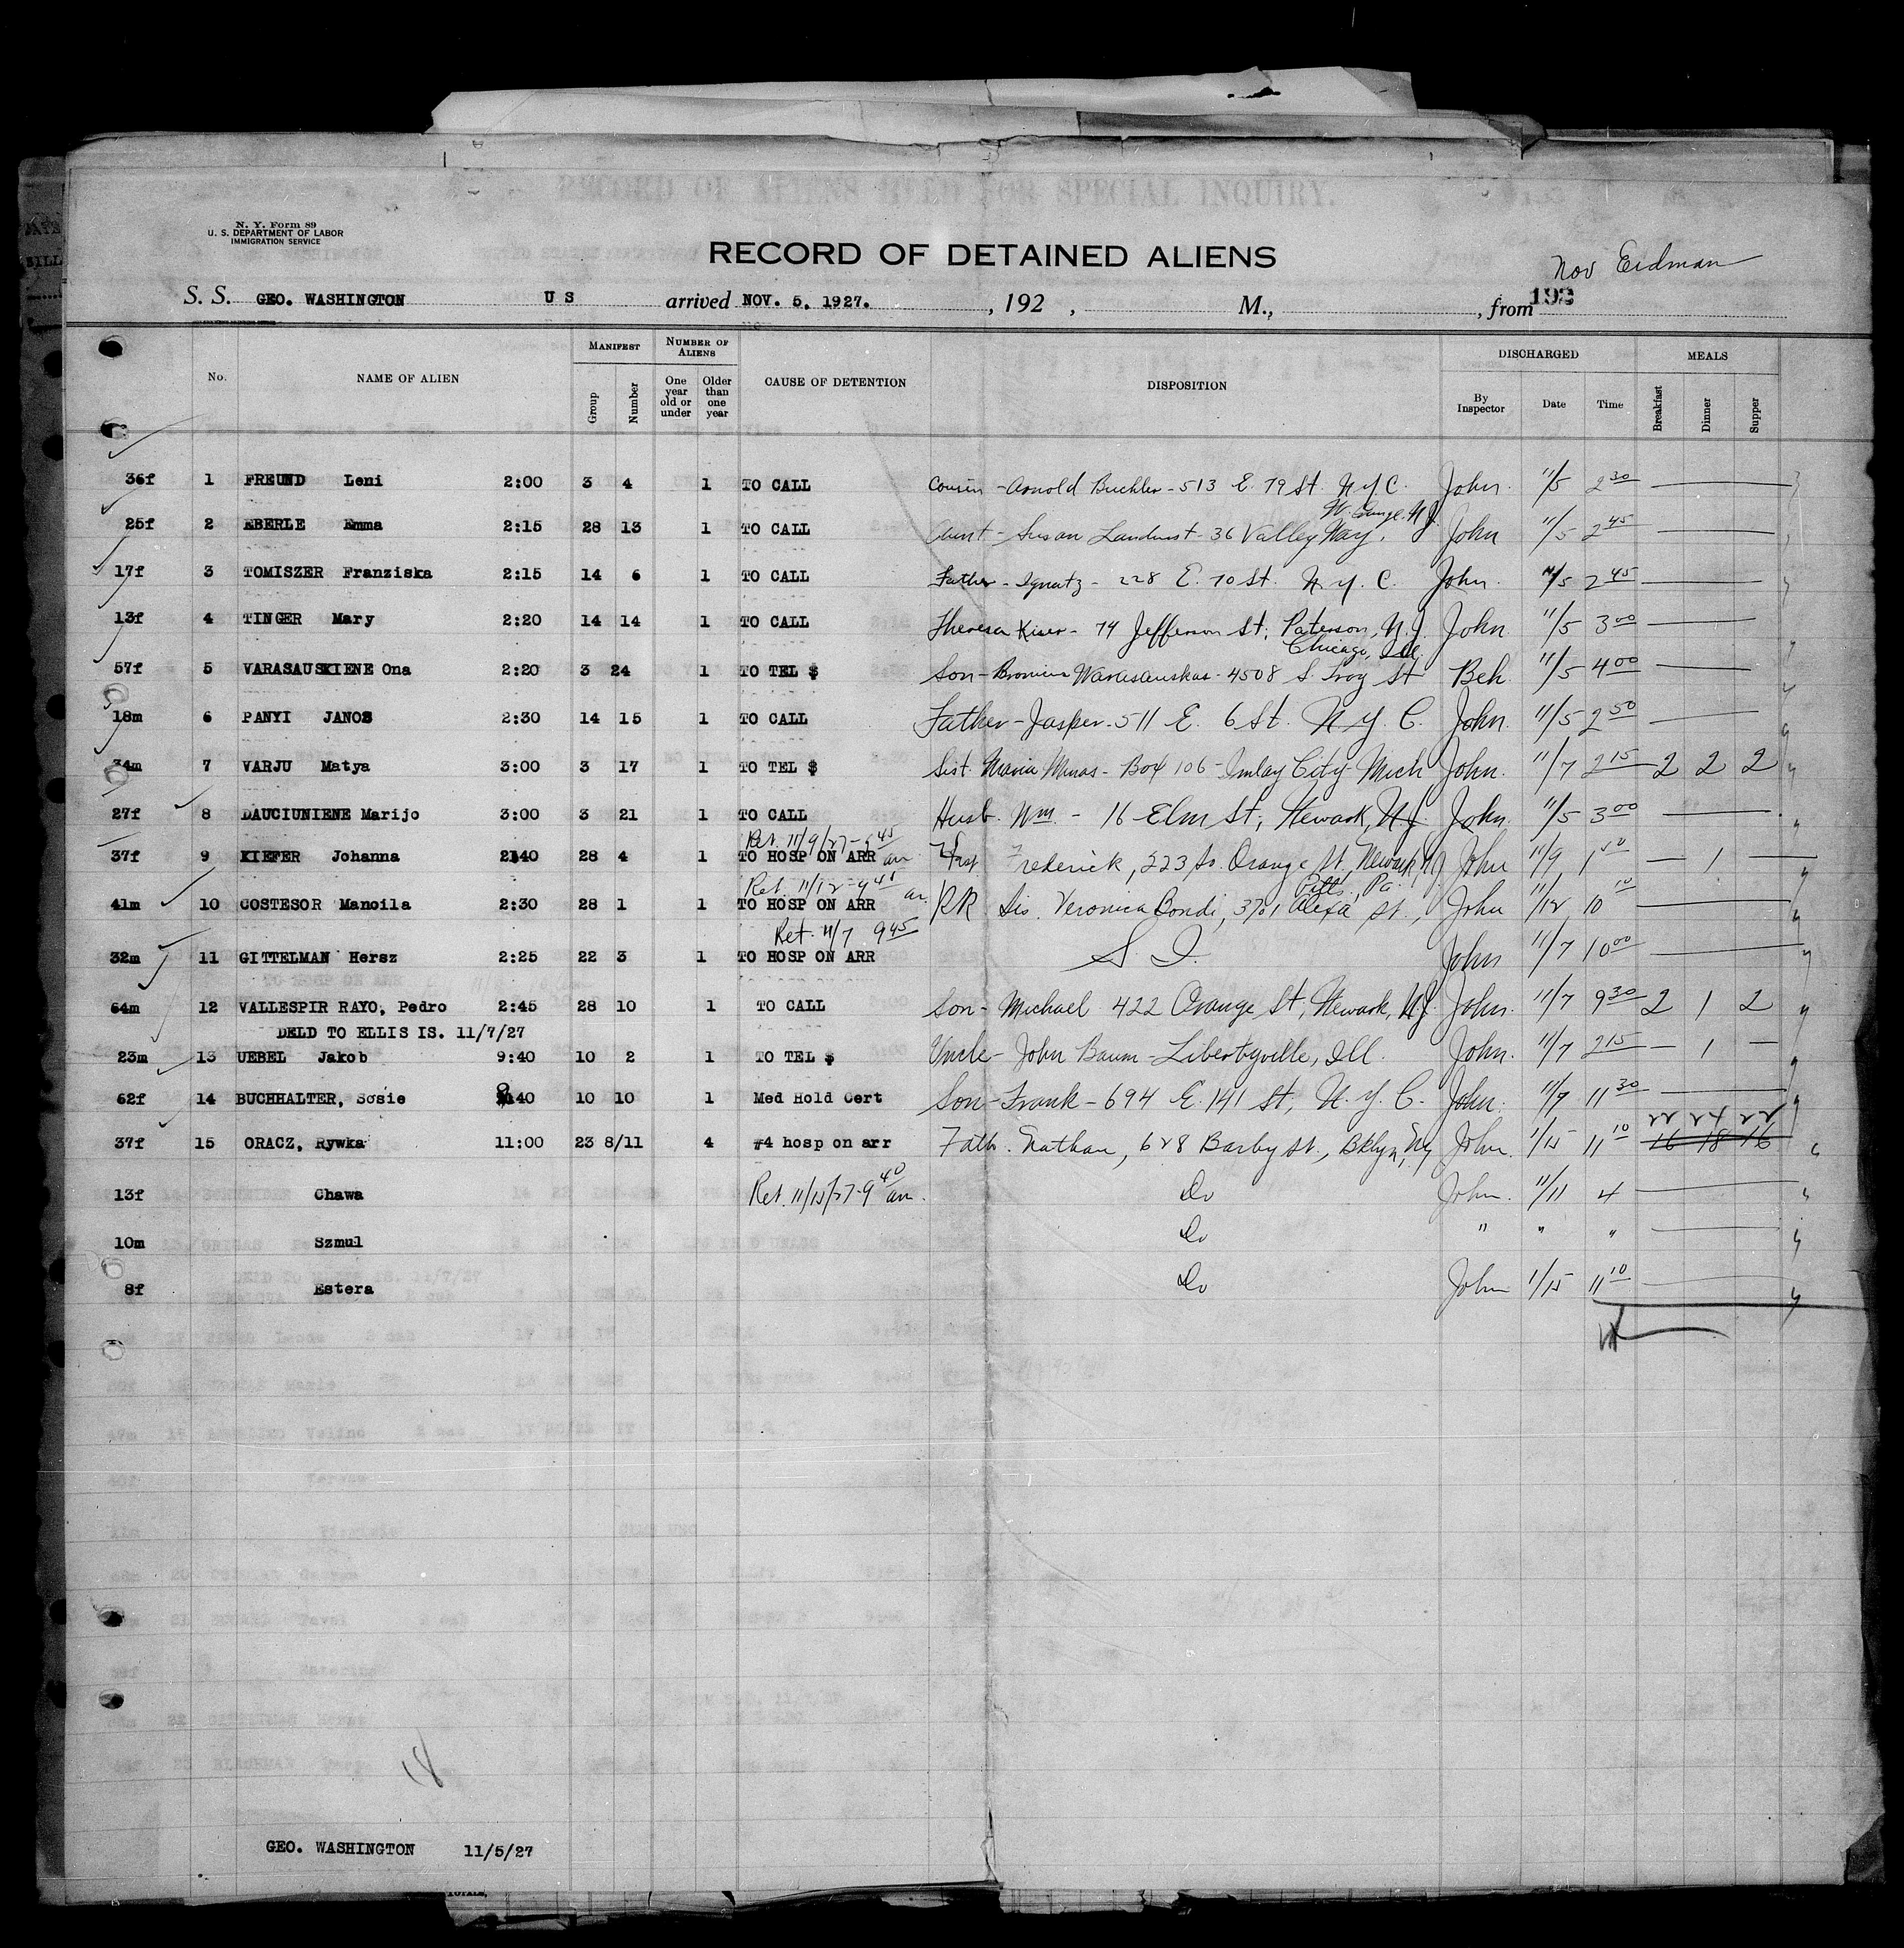 N. Y. Form 89
U. S. DEPARTMENT OF LABOR
IMMIGRATION SERVICE
RECORD OF DETAINED ALIENS
Nov Erdman
S. S. GEO. WASHINGTON U S arrived NOV. 5, 1927. , 192 , M., , from 192
No. NAME OF ALIEN MANIFEST Group Number NUMBER OF ALIENS One year old or under Older than one year CAUSE OF DETENTION DISPOSITION DISCHARGED By Inspector Date Time MEALS Breakfast Dinner Supper
36f 1 FREUND Leni 2:00 3 4 1 TO CALL Cousin - Arnold Buchler - 513 E. 79 St. N.Y.C. John. 11/5 2 30
W. Orange, N.J.
25f 2 EBERLE Emma 2:15 28 13 1 TO CALL Aunt - Susan - 36 Valley Way, John 11/5 2 45
17f 3 TOMISZER Franziska 2:15 14 6 1 TO CALL Father - Ignatz - 228 E. 70 St. N.Y.C. John. 11/5 2 45
13f 4 TINGER Mary 2:20 14 14 1 TO CALL Theresa Kiser - 74 Jefferson St, Paterson, N.J. John 11/5 3 00
Chicago, Ill.
57f 5 VARASAUSKIENE Ona 2:20 3 24 1 TO TEL $ Son - Warasauskas - 4508 S. Troy St Beh. 11/5 4 00
18m 6 PANYI JANOS 2:30 14 15 1 TO CALL Father - Jasper - 511 E. 6 St. N.Y.C. John. 11/5 2 50
34m 7 VARJU Matya 3:00 3 17 1 TO TEL $ Sist. Maria - Box 106 - Imlay City Mich John. 11/7 2 15 2 2 2
27f 8 DAUCIUNIENE Marijo 3:00 3 21 1 TO CALL Husb. Wm. - 16 Elm St, Newark, N.J. John. 11/5 3 00
Ret. 11/9/27 - 9 45 am
37f 9 KIEFER Johanna 2:40 28 4 1 TO HOSP ON ARR Frederick, 223 So. Orange St, Newark NJ John 11/9 1 1
Ret. 11/12 - 9 45 am. Pitts., Pa.
41m 10 COSTESOR Manoila 2:30 28 1 1 TO HOSP ON ARR RR Sis. Veronica Bondi, 3701 St., John 11/12 10 10
Ret. 11/7 9 45
32m 11 GITTELMAN Hersz 2:25 22 3 1 TO HOSP ON ARR S. I. John 11/7 10 00
64m 12 VALLESPIR RAYO, Pedro 2:45 28 10 1 TO CALL Son - Michael 422 Orange St, Newark, N.J. John. 11/7 9 30 2 1 2
DELD TO ELLIS IS. 11/7/27
23m 13 UEBEL Jakob 9:40 10 2 1 TO TEL $ Uncle - John Baum - Libertyville, Ill. John. 11/7 2 15 1
62f 14 BUCHHALTER, Sosie 9:40 10 10 1 Med Hold Cert Son - Frank - 694 E. 141 St, N.Y.C. John. 11/7 11 30
37f 15 ORACZ, Rywka 11:00 23 8/11 4 #4 hosp on arr Fath. Nathan, 628 Barby St., Bklyn, NY John. 11/15 11 10 16 18 16
13f Chawa Ret. 11/15/27 - 9 40 am. Do John. 11/11 4
10m Szmul Do " " "
8f Estera Do John 11/15 11 10
GEO. WASHINGTON 11/5/27